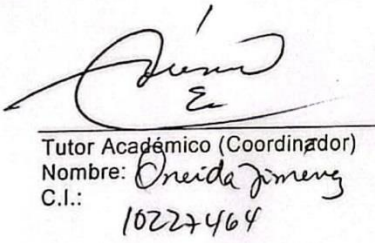 Tutor Académico (Coordinador)
Nombre: Oneida Jimenez
C.I.:
10227464